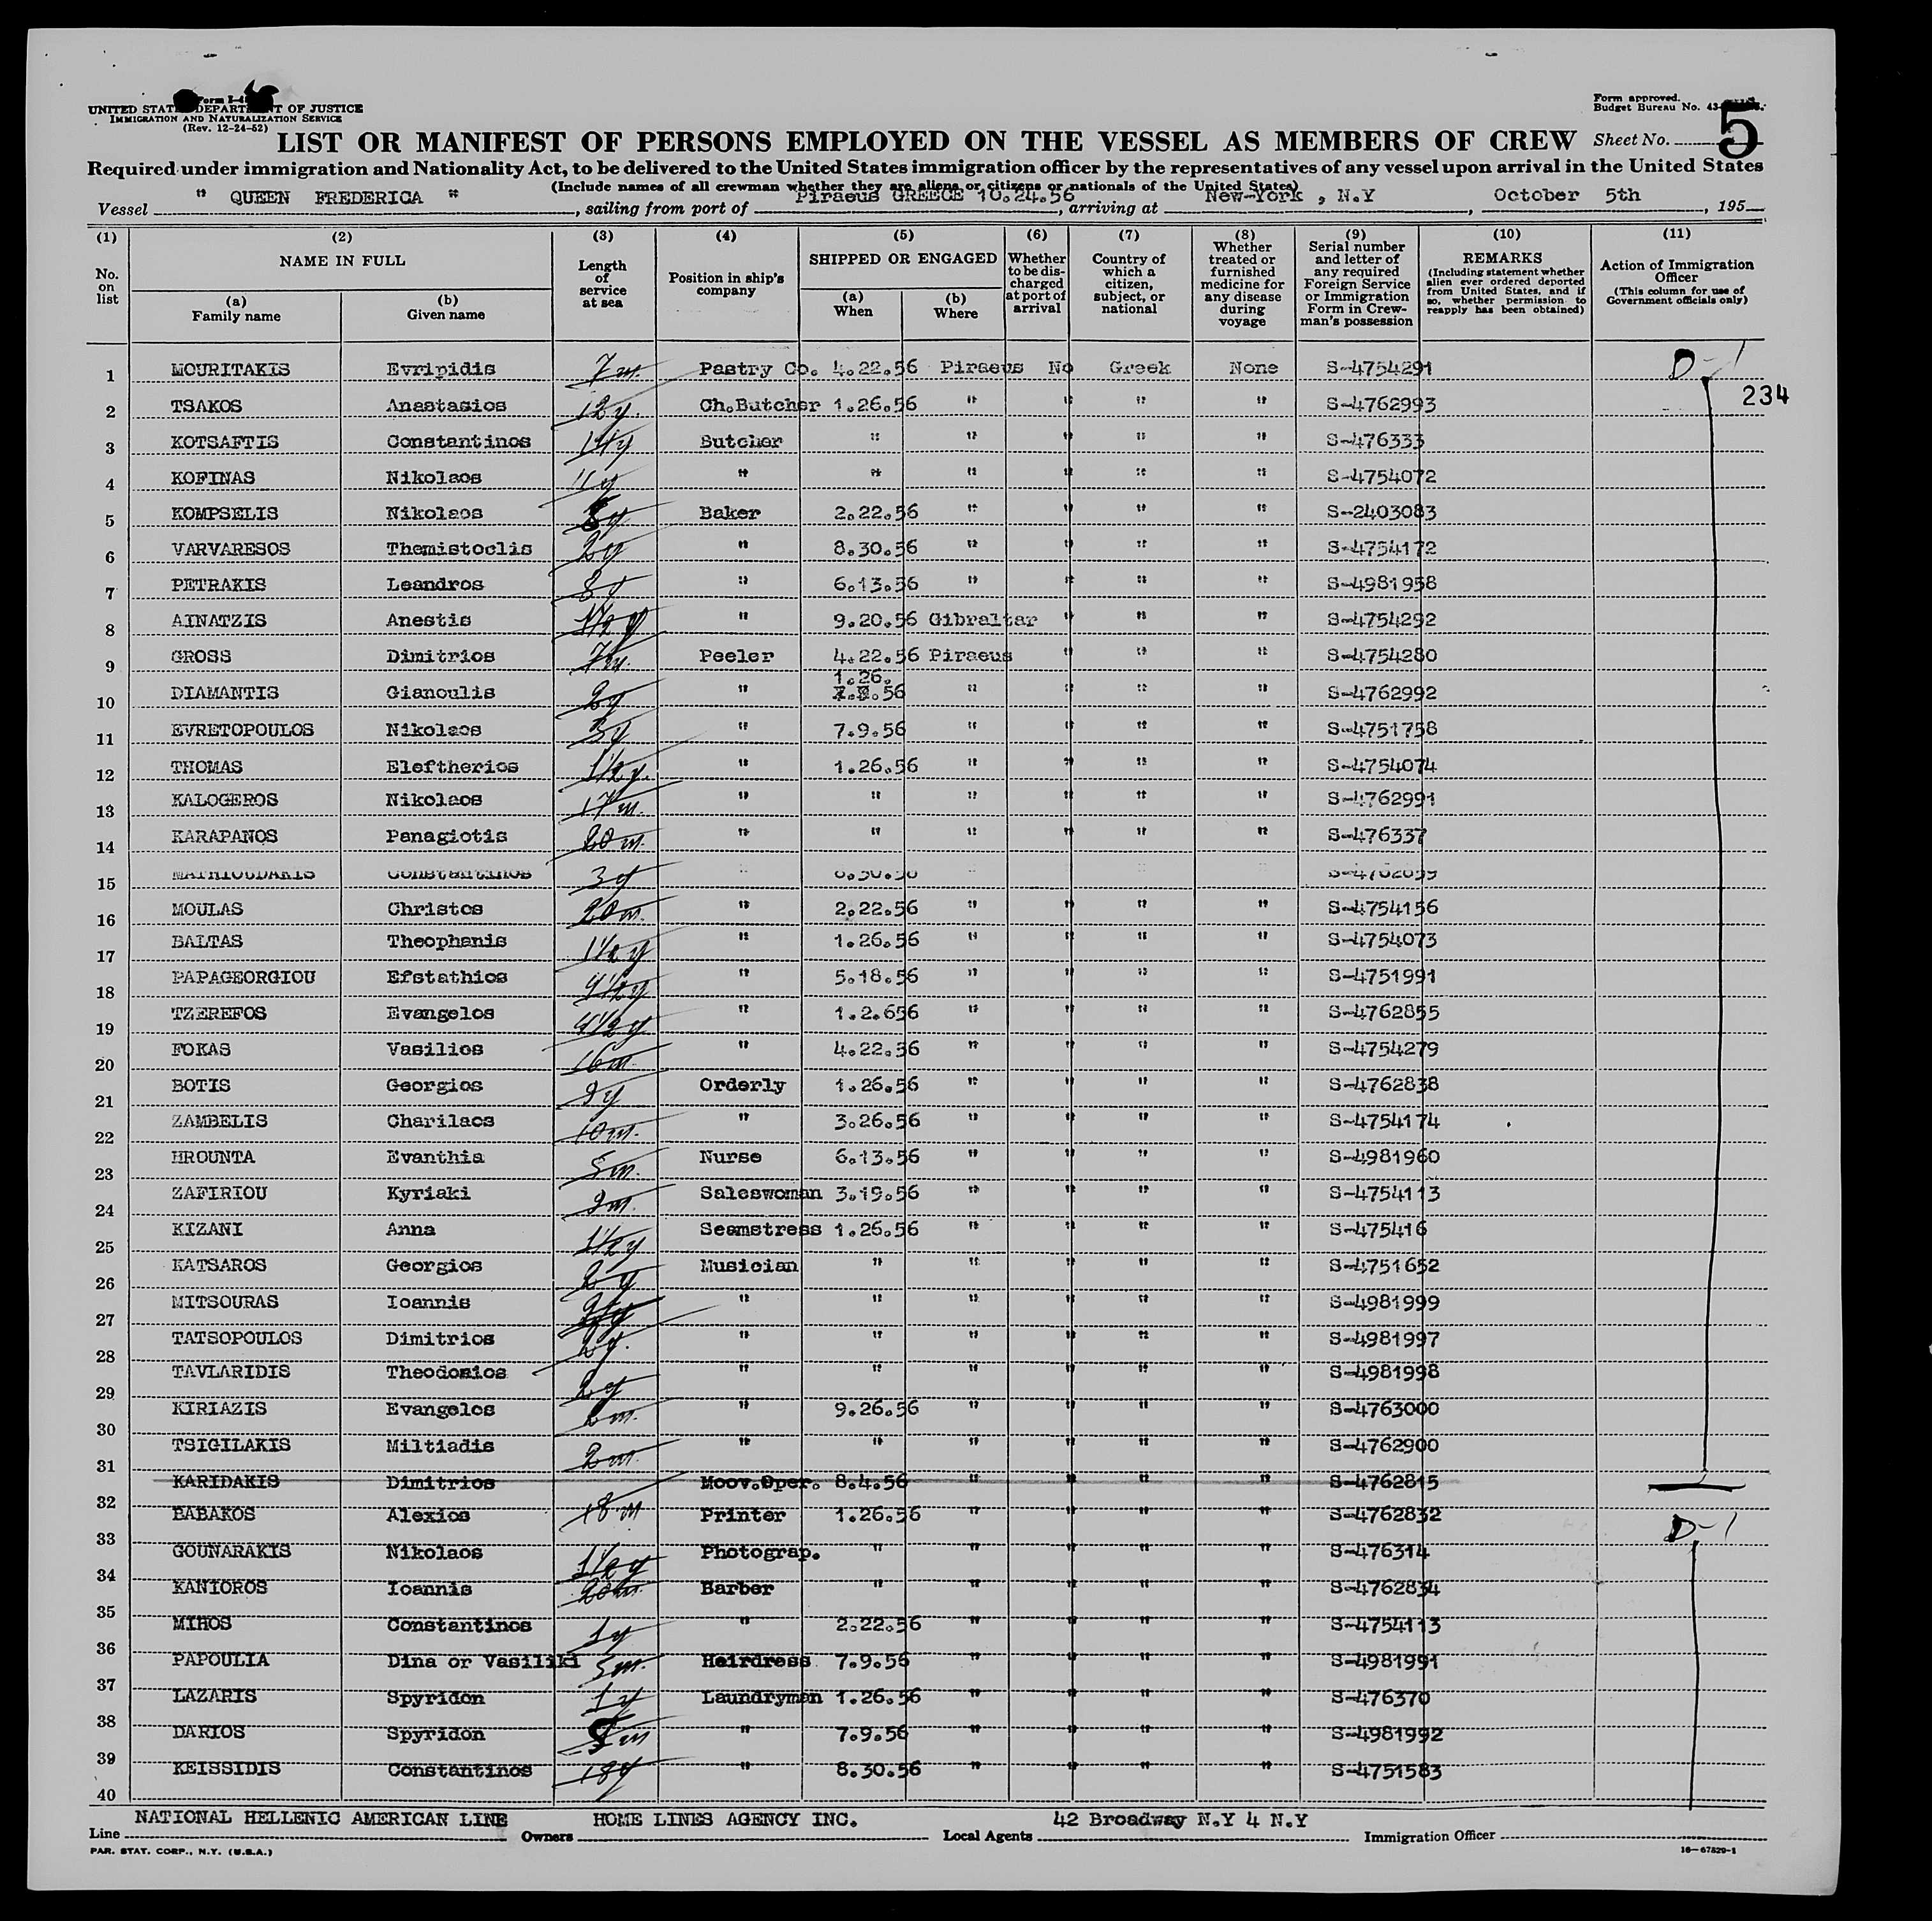 Form I-4
UNITED STATES DEPARTMENT OF JUSTICE
IMMIGRATION AND NATURALIZATION SERVICE
(Rev. 12-24-52)
Form approved.
Budget Bureau No. 43-
LIST OR MANIFEST OF PERSONS EMPLOYED ON THE VESSEL AS MEMBERS OF CREW Sheet No. 5
Required under immigration and Nationality Act, to be delivered to the United States immigration officer by the representatives of any vessel upon arrival in the United States
(Include names of all crewman whether they are aliens or citizens or nationals of the United States)
Vessel " QUEEN FREDERICA ", sailing from port of Piraeus GREECE 10.24.56, arriving at New-York , N.Y, October 5th, 195
(1) (2) (3) (4) (5) (6) (7) (8) (9) (10) (11)
No. on list
NAME IN FULL
(a) Family name
(b) Given name
Length of service at sea
Position in ship's company
SHIPPED OR ENGAGED
(a) When
(b) Where
Whether to be discharged at port of arrival
Country of which a citizen, subject, or national
Whether treated or furnished medicine for any disease during voyage
Serial number and letter of any required Foreign Service or Immigration Form in Crewman's possession
REMARKS
(Including statement whether alien ever ordered deported from United States, and if so, whether permission to reapply has been obtained)
Action of Immigration Officer
(This column for use of Government officials only)
1 MOURITAKIS Evripidis 7 m. Pastry Co. 4.22.56 Piraeus No Greek None S-4754291 D-1
234
2 TSAKOS Anastasios 12 y. Ch.Butcher 1.26.56 " " " " S-4762993
3 KOTSAFTIS Constantinos Butcher " " " " " S-476333
4 KOFINAS Nikolaos 11 y " " " " " " S-4754072
5 KOMPSELIS Nikolaos Baker 2.22.56 " " " " S-2403083
6 VARVARESOS Themistoclis 2 y " 8.30.56 " " " " S-4754172
7 PETRAKIS Leandros 8 y " 6.13.56 " " " " S-4981958
8 AINATZIS Anestis 1½ y " 9.20.56 Gibraltar " " " S-4754292
9 GROSS Dimitrios 7 m. Peeler 4.22.56 Piraeus " " " S-4754280
10 DIAMANTIS Gianoulis 2 y " 1.26.56 " " " " S-4762992
11 EVRETOPOULOS Nikolaos 3 y " 7.9.56 " " " " S-4751758
12 THOMAS Eleftherios 1½ y. " 1.26.56 " " " " S-4754074
13 KALOGEROS Nikolaos 17 m. " " " " " " S-4762991
14 KARAPANOS Panagiotis 20 m. " " " " " " S-476337
15 Constantinos 3 y " 8.30.56 " " " "
16 MOULAS Christos 20 m. " 2.22.56 " " " " S-4754156
17 BALTAS Theophanis 1½ y " 1.26.56 " " " " S-4754073
18 PAPAGEORGIOU Efstathios 4½ y " 5.18.56 " " " " S-4751991
19 TZEREFOS Evangelos 4½ y " 1.2.656 " " " " S-4762855
20 FOKAS Vasilios 16 m. " 4.22.56 " " " " S-4754279
21 BOTIS Georgios 9 y Orderly 1.26.56 " " " " S-4762838
22 ZAMBELIS Charilaos 10 m. " 3.26.56 " " " " S-4754174
23 HROUNTA Evanthia 5 m. Nurse 6.13.56 " " " " S-4981960
24 ZAFIRIOU Kyriaki 9 m. Saleswoman 3.19.56 " " " " S-4754113
25 KIZANI Anna 1½ y Seamstress 1.26.56 " " " " S-475416
26 KATSAROS Georgios 2 y Musician " " " " " S-4751652
27 MITSOURAS Ioannis " " " " " " S-4981999
28 TATSOPOULOS Dimitrios 2 y. " " " " " " S-4981997
29 TAVLARIDIS Theodosios 2 y " " " " " " S-4981998
30 KIRIAZIS Evangelos 2 m. " 9.26.56 " " " " S-4763000
31 TSIGILAKIS Miltiadis 2 m. " " " " " " S-4762900
32 KARIDAKIS Dimitrios Moov.Oper. 8.4.56 " " " " S-4762815
33 BABAKOS Alexios 18 m Printer 1.26.56 " " " " S-4762832 D-1
34 GOUNARAKIS Nikolaos 1½ y Photograp. " " " " " S-476314
35 KANIOROS Ioannis 20 m Barber " " " " " S-4762834
36 MIHOS Constantinos 1 y " 2.22.56 " " " " S-4754113
37 PAPOULIA Dina or Vasiliki 5 m. Hairdress 7.9.56 " " " " S-4981991
38 LAZARIS Spyridon 1 y Laundryman 1.26.56 " " " " S-476370
39 DARIOS Spyridon " 7.9.56 " " " " S-4981992
40 KEISSIDIS Constantinos 18 y " 8.30.56 " " " " S-4751583
Line NATIONAL HELLENIC AMERICAN LINE Owners HOME LINES AGENCY INC. Local Agents 42 Broadway N.Y 4 N.Y Immigration Officer
PAR. STAT. CORP., N.Y. (U.S.A.)
16—67829-1